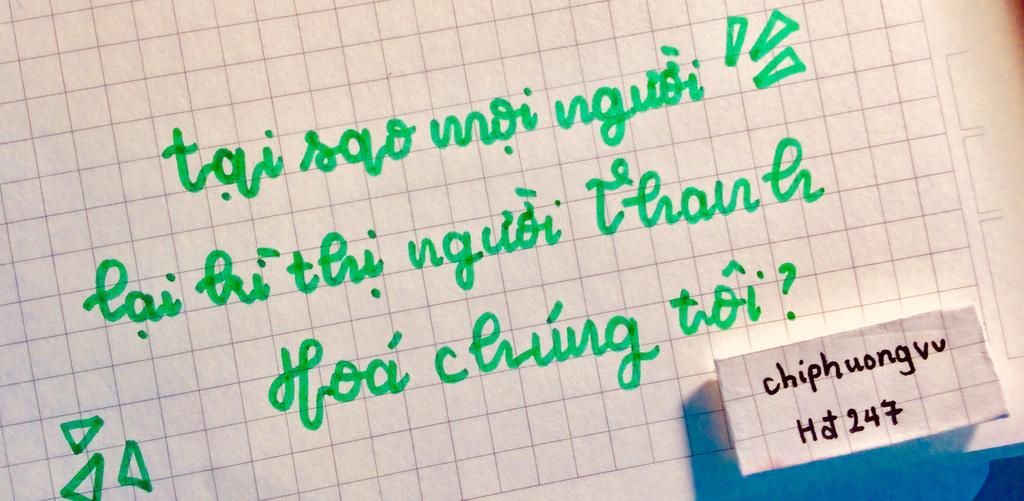 tại sao mọi người
lại kì thị người Thanh
Hoá chúng tôi?
chiphuongvv
Hđ 247